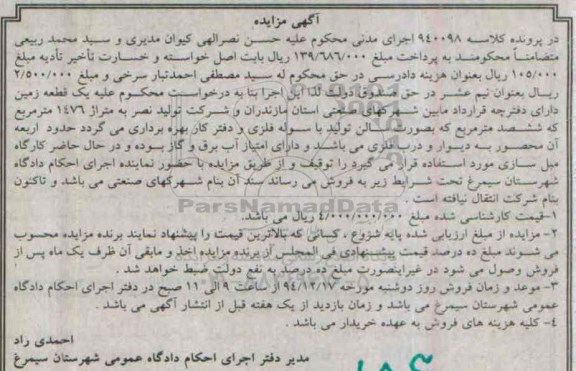 آگهی مزایده
در پرونده کلاسه ۹۴۰۰۹۸ اجرای مدنی محکوم علیه حسن نصرالهی کیوان مدیری و سید محمد ربیعی
متضامناً محکومند به پرداخت مبلغ ۱۳۹/۶۸۶/۰۰۰ ریال بابت اصل خواسته و خسارت تأخیر تأدیه مبلغ
۱۰۵/۰۰۰ ریال بعنوان هزینه دادرسی در حق محکوم له سید مصطفی احمدتبار سرخی و مبلغ ۲/۵۰۰/۰۰۰
ریال بعنوان نیم عشر در حق صندوق دولت لذا این اجرا بنا به درخواست محکوم علیه یک قطعه زمین
دارای دفترچه قرارداد مابین شهرکهای صنعتی استان مازندران و شرکت تولید نصر به متراژ ۱۴۷۶ مترمربع
که ششصد مترمربع که بصورت سالن تولید با سوله فلزی و دفتر کار بهره برداری می گردد حدود اربعه
آن محصور به دیوار و درب فلزی می باشد و دارای امتیاز آب برق و گاز بوده و در حال حاضر کارگاه
مبل سازی مورد استفاده قرار می گیرد را توقیف و از طریق مزایده با حضور نماینده اجرای احکام دادگاه
شهرستان سیمرغ تحت شرایط زیر به فروش می رساند سند آن بنام شهرکهای صنعتی می باشد و تاکنون
بنام شرکت انتقال نیافته است .
ParsNamadData
۱-قیمت کارشناسی شده مبلغ ۴/۰۰۰/۰۰۰/۰۰۰ ریال می باشد.
۲- مزایده از مبلغ ارزیابی شده پایه شروع ، کسانی که بالاترین قیمت را پیشنهاد نمایند برنده مزایده محسوب
می شوند مبلغ ده درصد قیمت پیشنهادی فی المجلس از برنده مزایده اخذ و مابقی آن ظرف یک ماه پس از
فروش وصول می شود در غیراینصورت مبلغ ده درصد به نفع دولت ضبط خواهد شد .
۳- موعد و زمان فروش روز دوشنبه مورخه ۹۴/۱۲/۱۷ از ساعت ۹ الی ۱۱ صبح در دفتر اجرای احکام دادگاه
عمومی شهرستان سیمرغ می باشد و زمان بازدید از یک هفته قبل از انتشار آگهی می باشد .
۴- کلیه هزینه های فروش به عهده خریدار می باشد .
احمدی راد
مدیر دفتر اجرای احکام دادگاه عمومی شهرستان سیمرغ